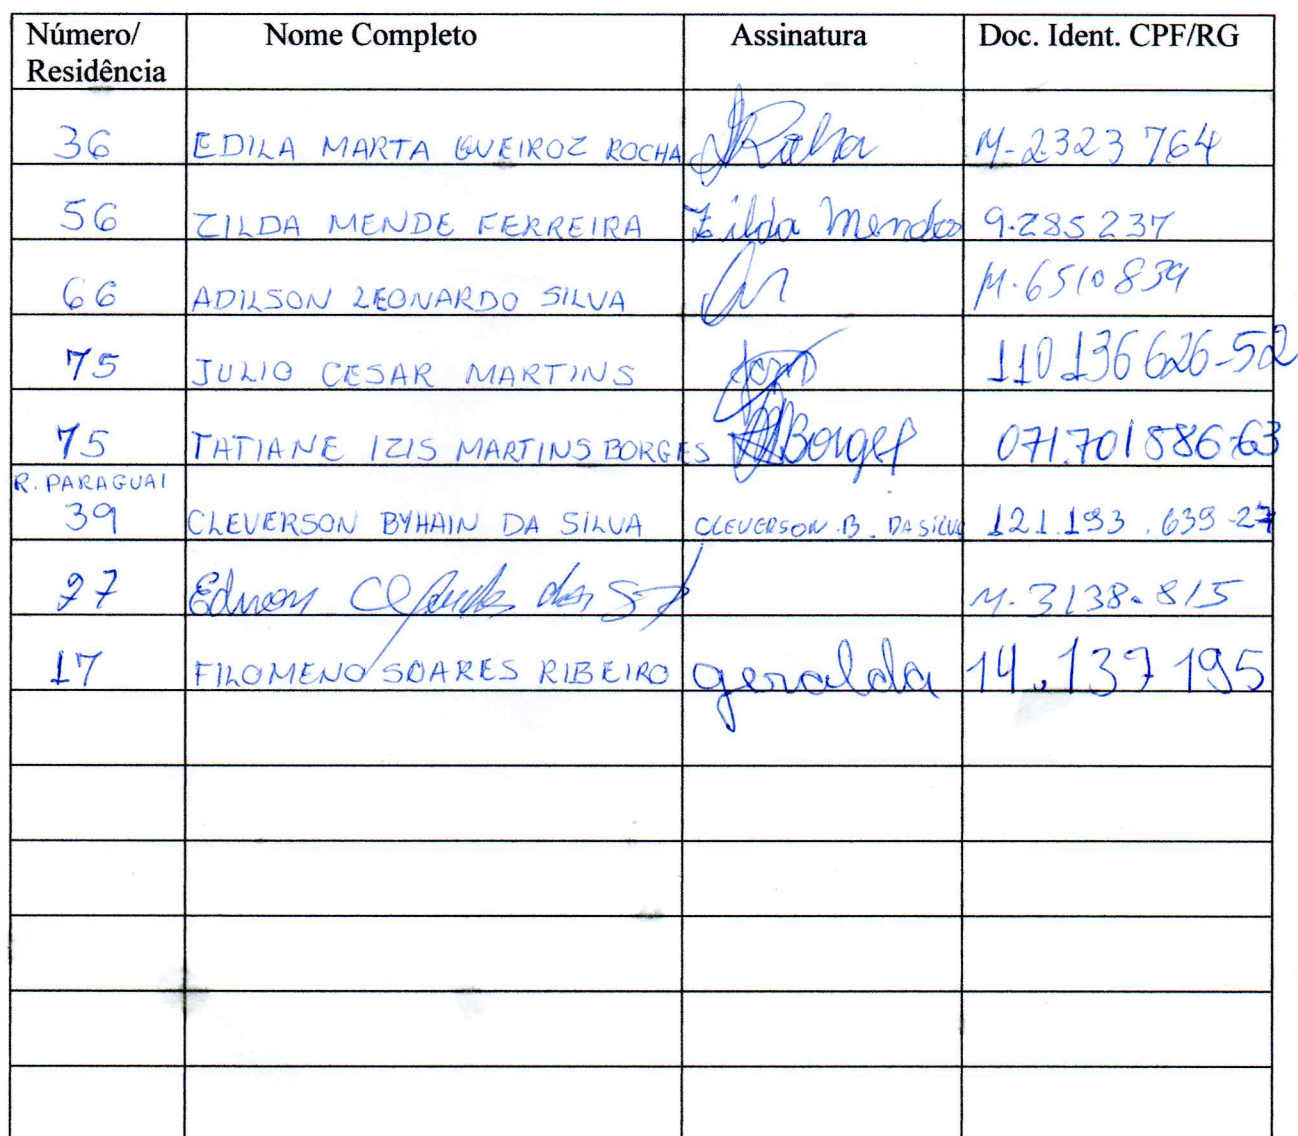 Número/ Nome Completo Assinatura Doc. Ident. CPF/RG
Residência
36 EDILA MARTA QUEIROZ ROCHA Rocha M-2323764
56 ZILDA MENDE FERREIRA Zilda Mendes 9.285237
66 ADILSON LEONARDO SILVA M.6510839
75 JULIO CESAR MARTINS 110136626-52
75 TATIANE IZIS MARTINS BORGES Borges 071.701586-63
R. PARAGUAI
39 CLEVERSON BYHAIN DA SILVA CLEVERSON.B. DA SILVA 121.193.639-27
97 M.3138.815
17 FILOMENO SOARES RIBEIRO geralda 14.137195